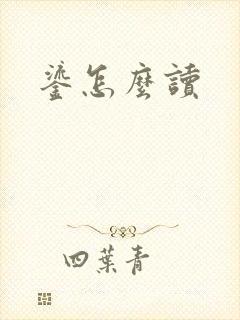 鎏怎麼讀
四葉青